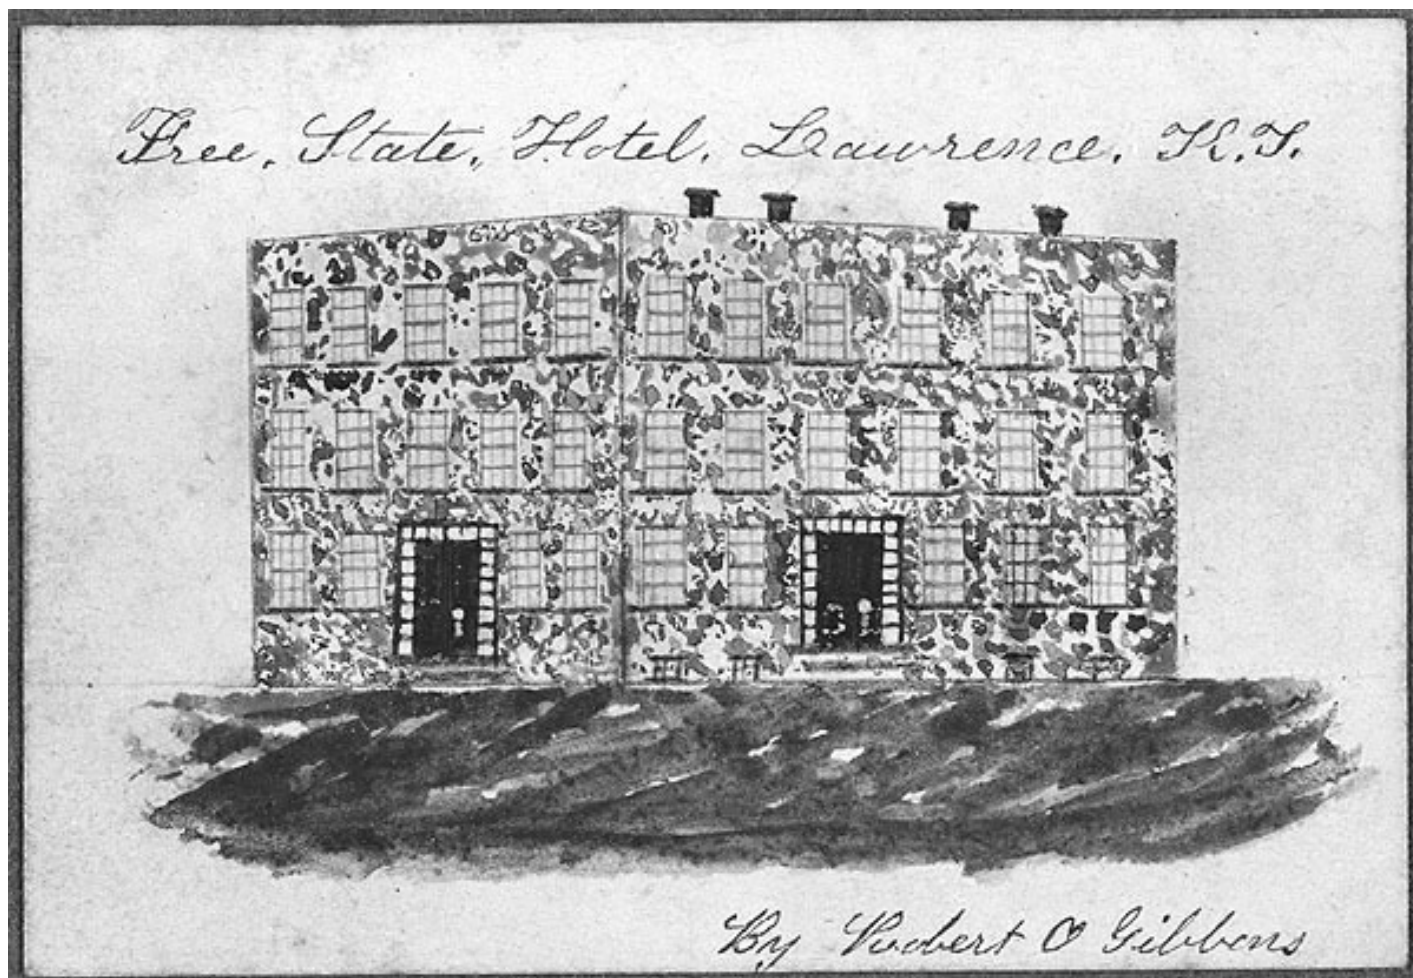 Free, State, Hotel, Lawrence, K.T.
By Robert O Gibbens